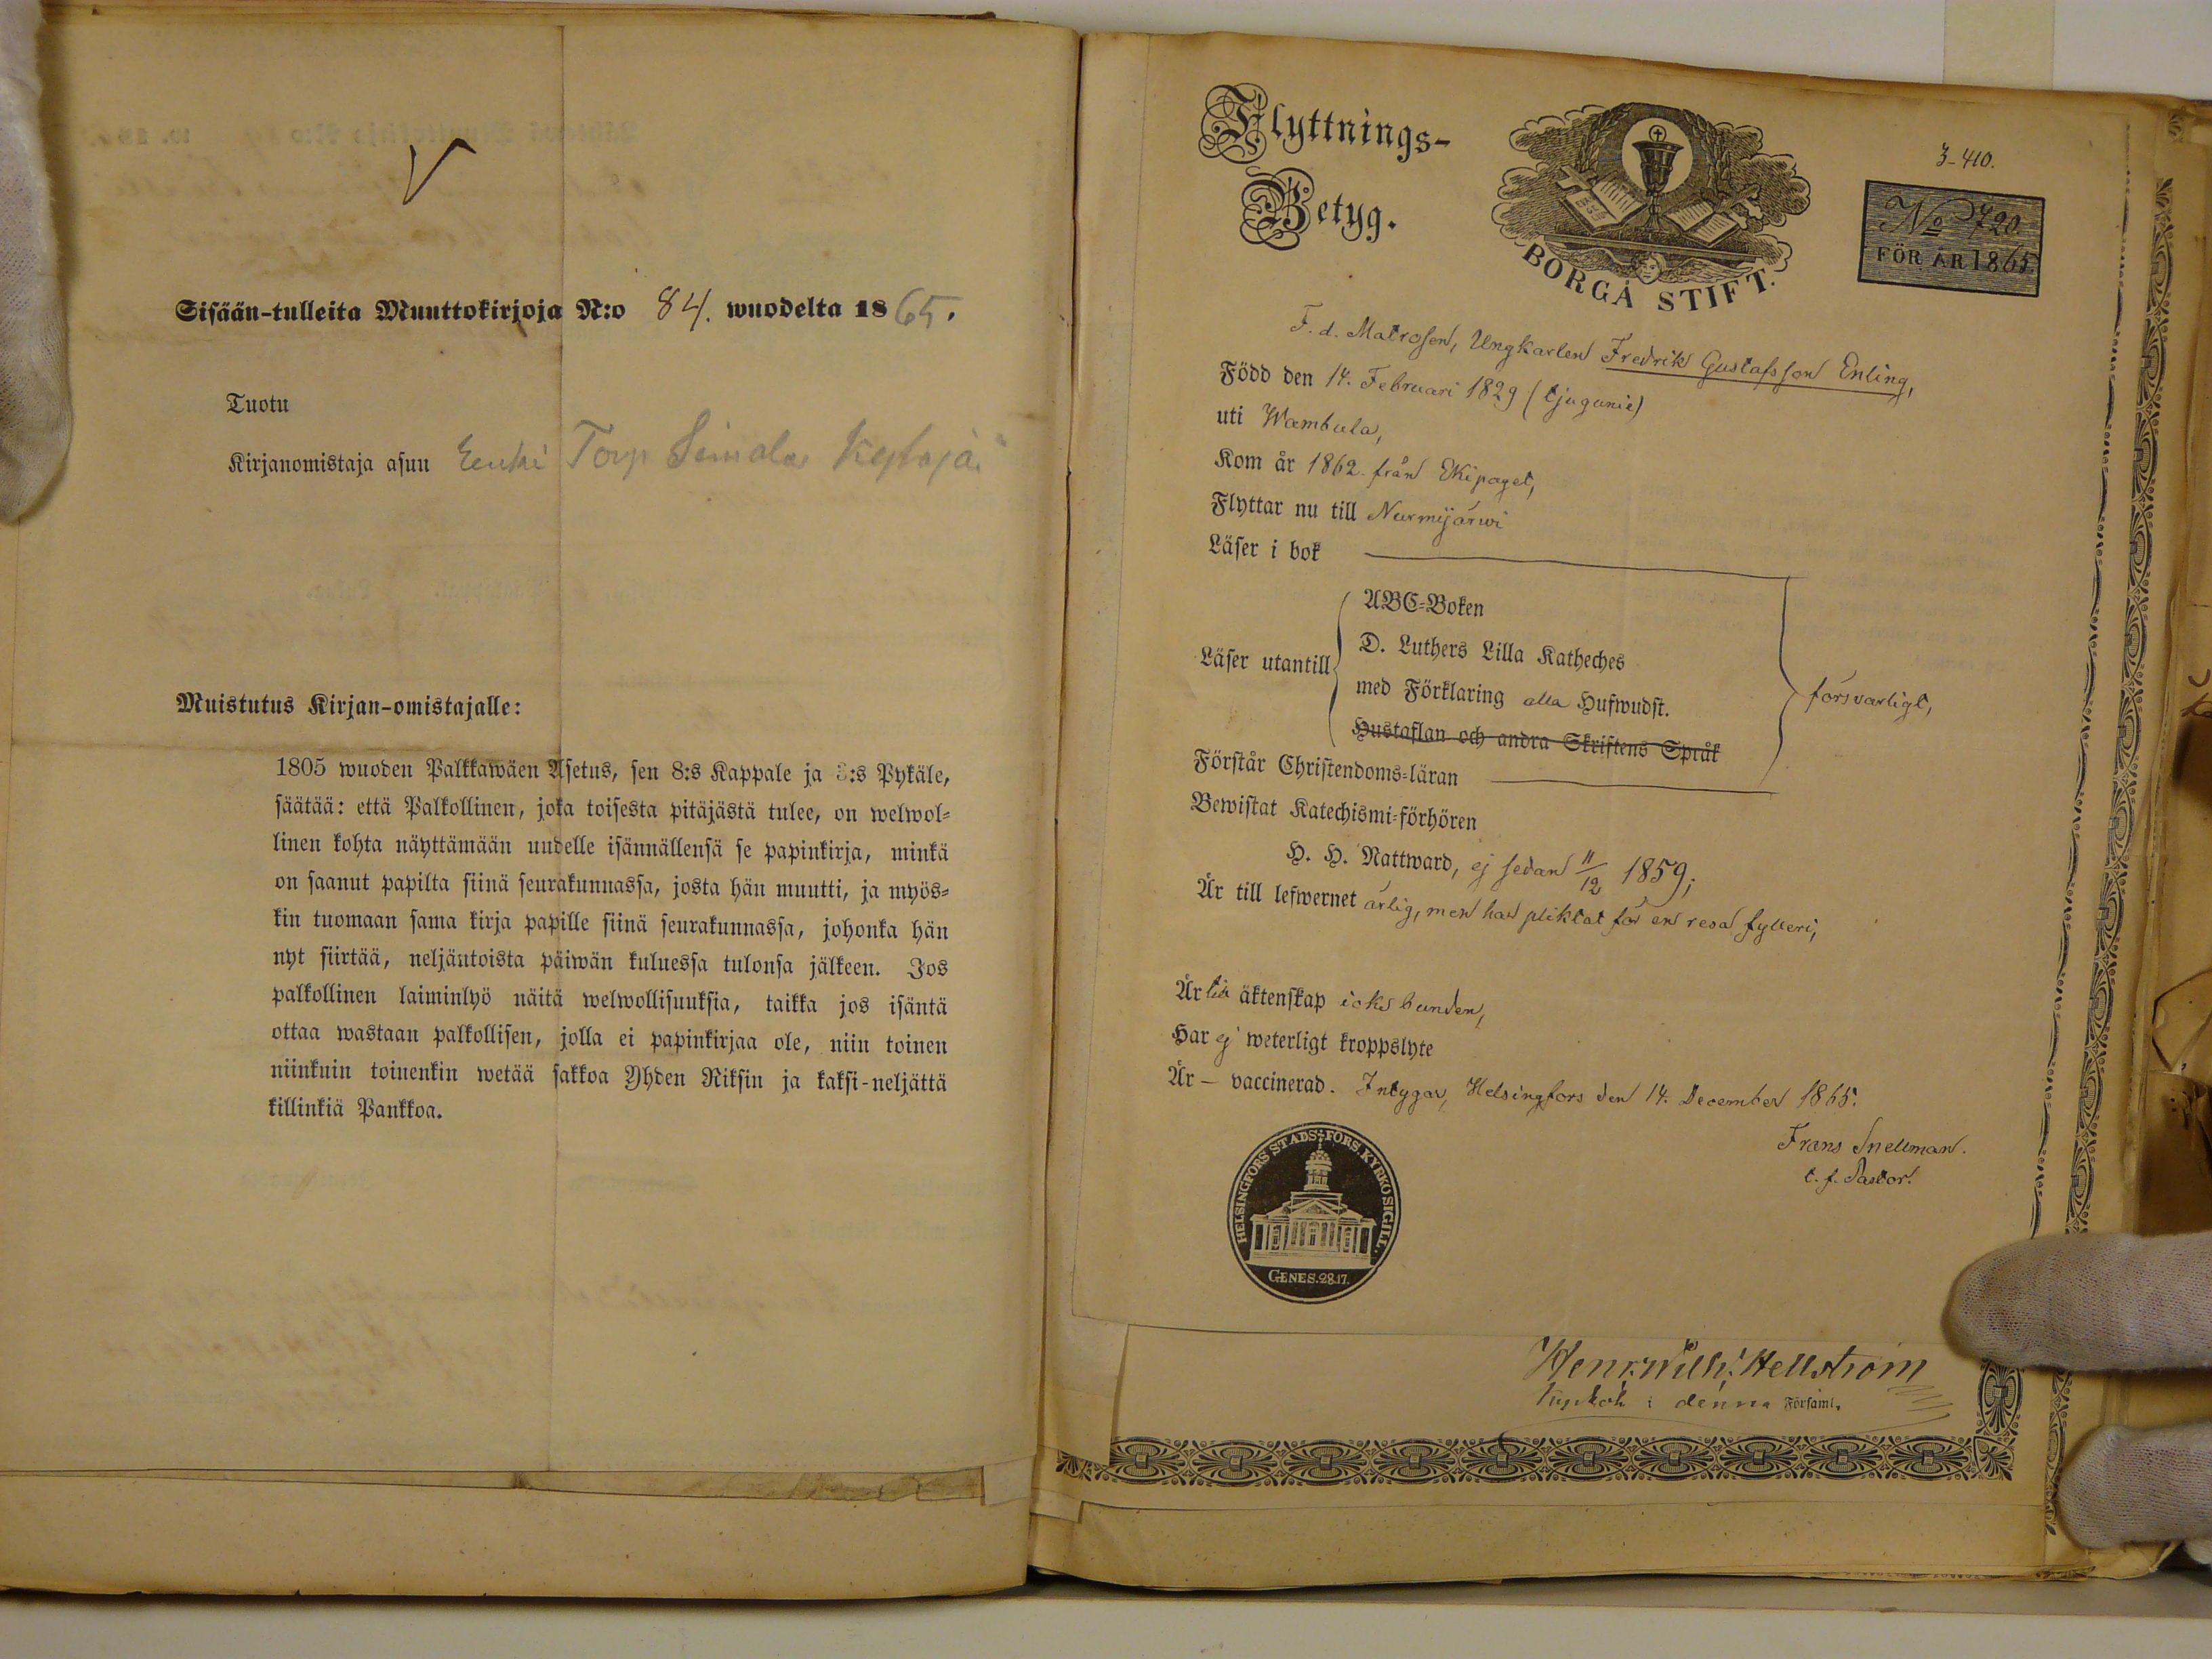 Sisään-tulleita Muuttokirjoja N:o 84. wuodelta 1865.
Tuotu
Kirjanomistaja asuu Torp
Muistutus Kirjan-omistajalle:
1805 wuoden Palkkawäen Asetus, sen 8:s Kappale ja 3:s Pykäle,
säätää: että Palkollinen, joka toisesta pitäjästä tulee, on welwol-
linen kohta näyttämään uudelle isännällensä se papinkirja, minkä
on saanut papilta siinä seurakunnassa, josta hän muutti, ja myös-
kin tuomaan sama kirja papille siinä seurakunnassa, johonka hän
nyt siirtää, neljäntoista päiwän kuluessa tulonsa jälkeen. Jos
palkollinen laiminlyö näitä welwollisuuksia, taikka jos isäntä
ottaa wastaan palkollisen, jolla ei papinkirjaa ole, niin toinen
niinkuin toinenkin wetää sakkoa Yhden Riksin ja kaksi-neljättä
killinkiä Pankkoa.
Flyttnings-
Betyg.
BORGÅ STIFT.
3-410.
No 720.
FÖR ÅR 1865.
F. d. Matrosen, Ungkarlen Fredrik Gustafsson Enling,
Född den 14. Februari 1829 (tjugunie)
uti Wambula,
Kom år 1862. från Ekipaget,
Flyttar nu till Nurmijärwi
Läser i bok
ABC-Boken
D. Luthers Lilla Katheches
Läser utantill
med Förklaring alla Hufwudst.
försvarligt,
Hustaflan och andra Skriftens Språk
Förstår Christendoms-läran
Bewistat Katechismi-förhören
H. H. Nattward, ej sedan 11/12 1859;
Är till lefwernet ärlig, men har pliktat för en resa fylleri,
Är till äktenskap icke bunden,
Har ej weterligt kroppslyte
Är — vaccinerad. Intygar, Helsingfors den 14. December 1865.
Frans Snellman.
t. f. Pastor.
HELSINGFORS STADS-FÖRS. KYRKOSIGILL.
GENES. 28.17.
Henr. Wilh. Hellström
i denna Församl.